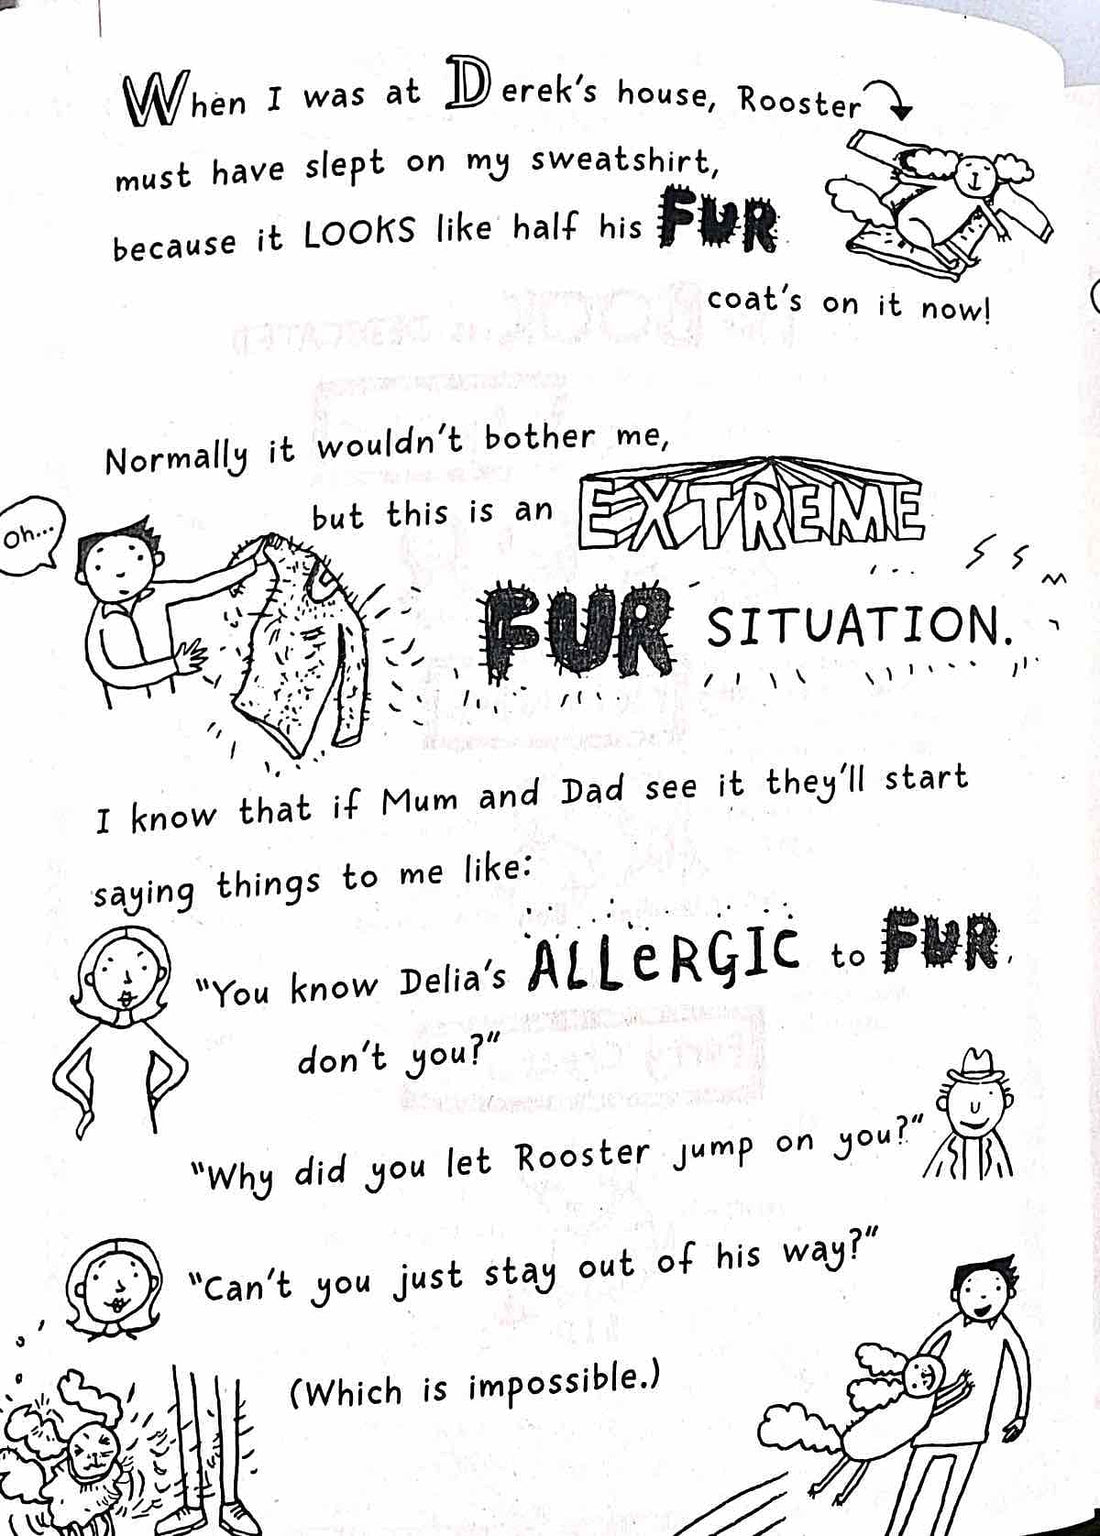 When I was at Derek's house, Rooster
must have slept on my sweatshirt,
because it LOOKS like half his FUR
coat's on it now!
Normally it wouldn't bother me,
but this is an EXTREME
oh...
FUR SITUATION.
I know that if Mum and Dad see it they'll start
saying things to me like:
"You know Delia's ALLeRGIC to FUR,
don't you?"
"Why did you let Rooster jump on you?"
"Can't you just stay out of his way?"
(Which is impossible.)